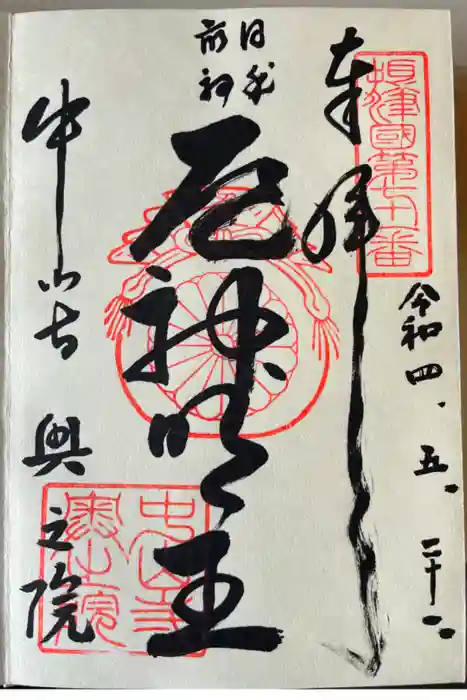 摂津國第七十一番
令和四、五、二十一、
奉拝
厄神明王
中山寺 奥之院
中山寺
奥之院